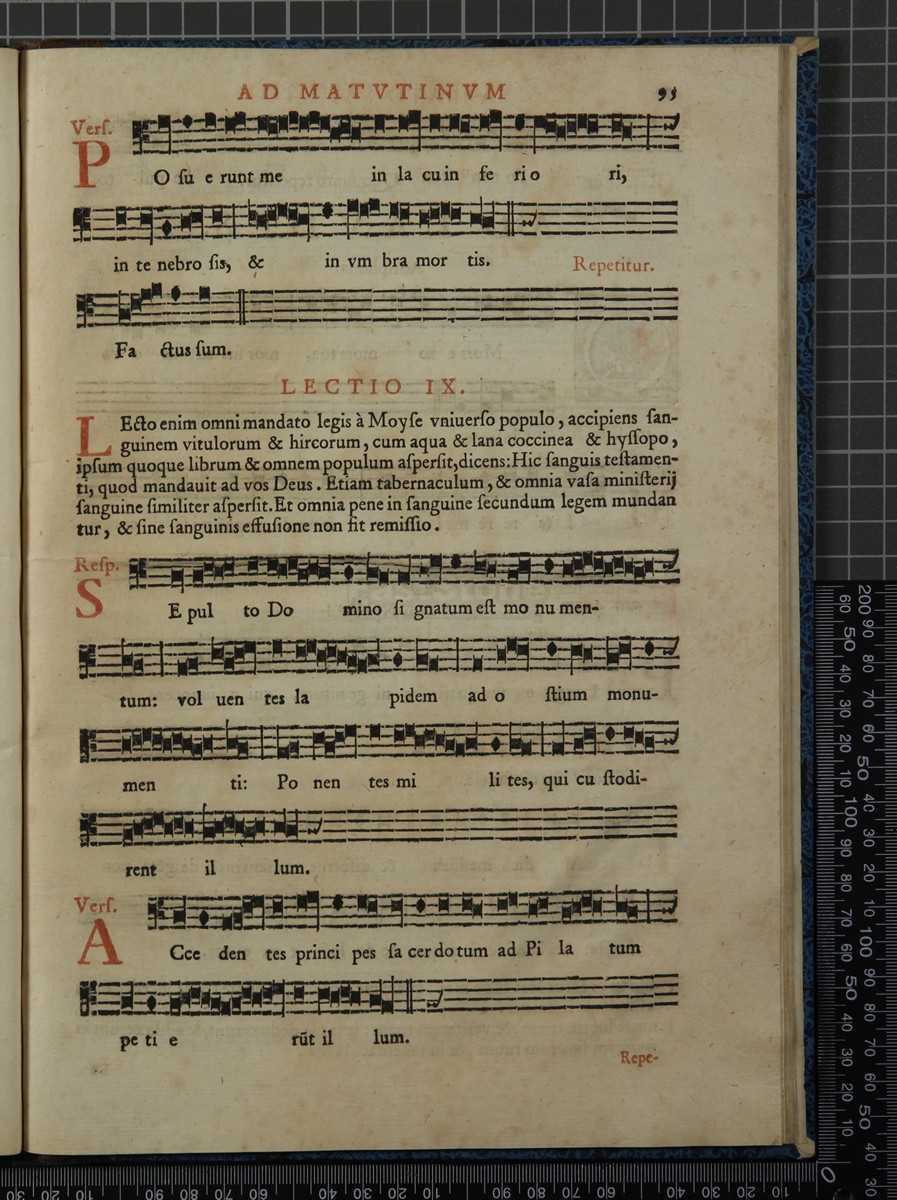 AD MATVTINVM 95
Verſ.
PO ſu e runt me in la cu in fe ri o ri,
in te nebro ſis, & in vm bra mor tis. Repetitur.
Fa ctus ſum.
LECTIO IX.
LEcto enim omni mandato legis à Moyſe vniuerſo populo, accipiens ſan-
guinem vitulorum & hircorum, cum aqua & lana coccinea & hyſſopo,
ipſum quoque librum & omnem populum aſperſit, dicens: Hic ſanguis teſtamen-
ti, quod mandauit ad vos Deus. Etiam tabernaculum, & omnia vaſa miniſterij
ſanguine ſimiliter aſperſit. Et omnia pene in ſanguine ſecundum legem mundan
tur, & ſine ſanguinis effuſione non fit remiſſio.
Reſp.
SE pul to Do mino ſi gnatum eſt mo nu men-
tum: vol uen tes la pidem ad o ſtium monu-
men ti: Po nen tes mi li tes, qui cu ſtodi-
rent il lum.
Verſ.
ACce den tes princi pes ſa cer do tum ad Pi la tum
pe ti e rūt il lum.
Repe-
200 90 80 70 60 50 40 30 20 10 100 90 80 70 60 50 40 30 20 10 100 90 80 70 60 50 40 30
60 50 40 30 20 10 100 90 80 70 60 50 40 30 20 10 0